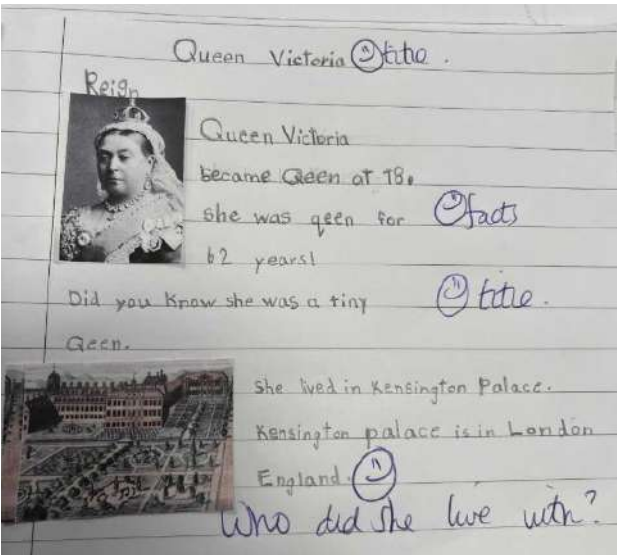 Queen Victoria title.
Reign
Queen Victoria
became Qeen at 18.
she was qeen for facts
62 years!
Did you know she was a tiny title.
Qeen.
She lived in Kensington Palace.
Kensington palace is in London
England.
Who did she live with?